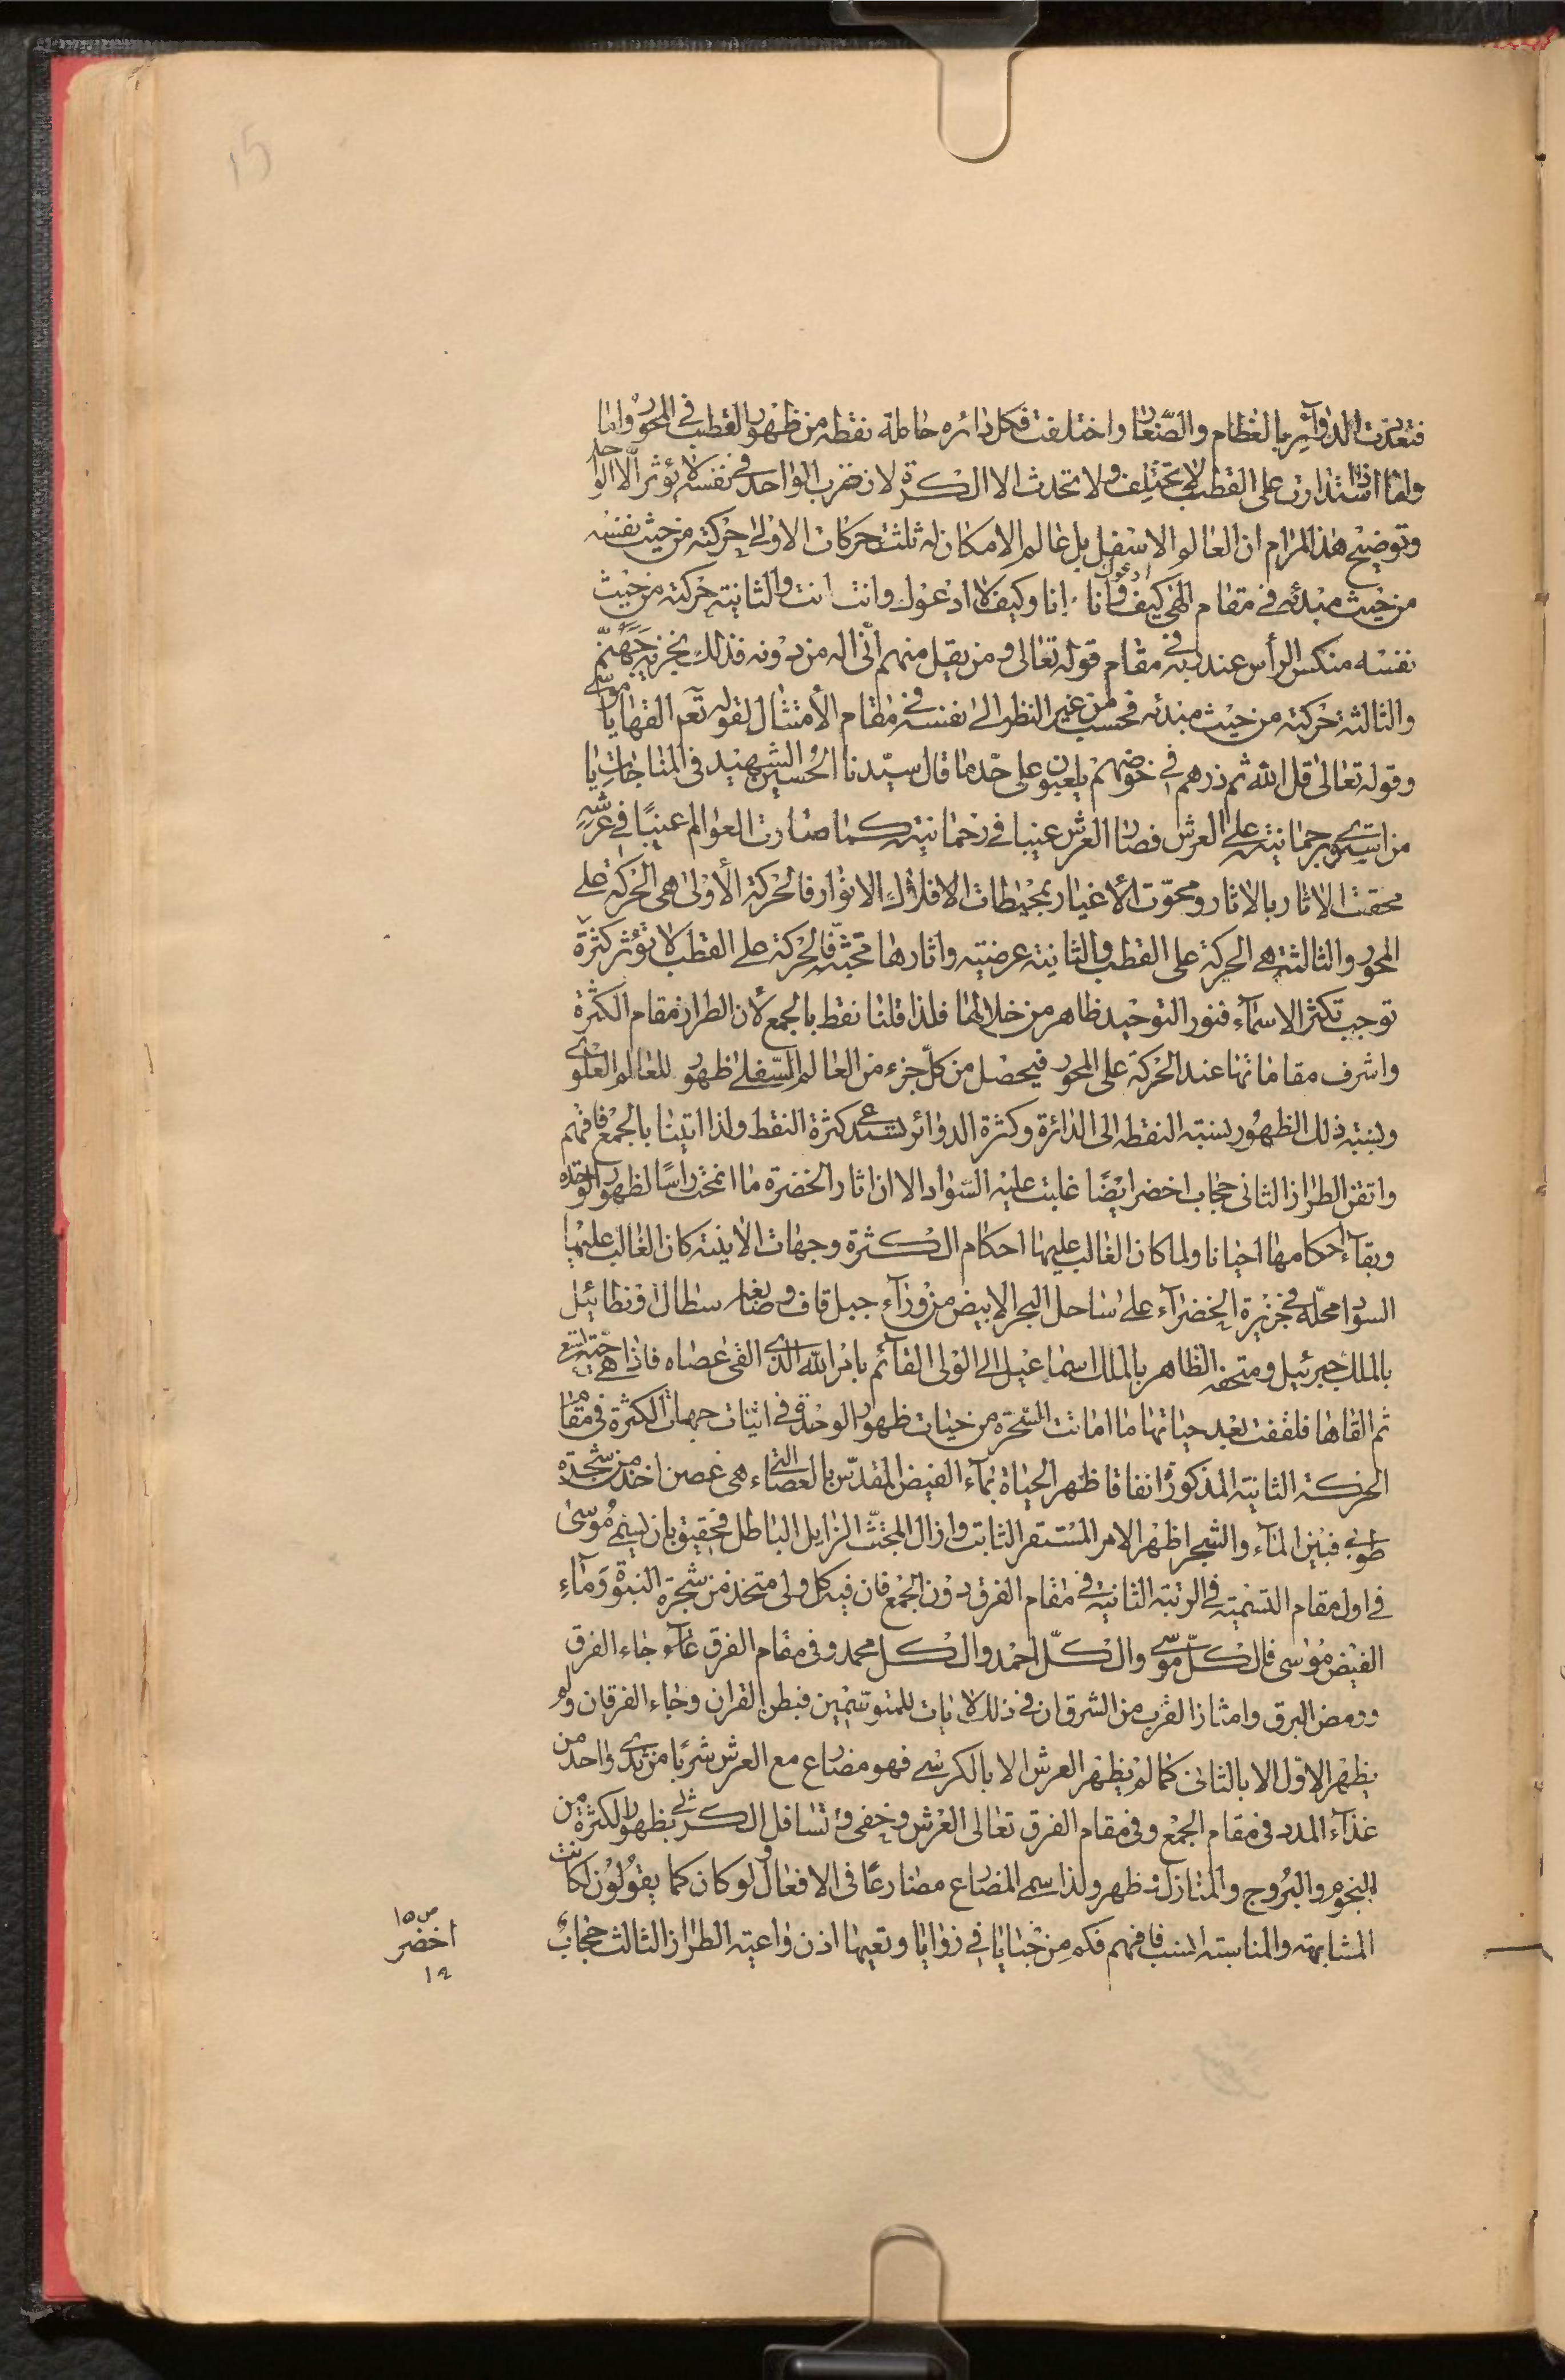 15
فتعددت الدوآئر بالعظام والصغار واختلفت فكل دائره حاملة نقطه من ظهور القطب في المحور واما
واما اذا استدارت على القطب لا يختلف ولا تحدث الا الكرة لان ضرب الواحد في نفسه لا يؤثر الا الواحد
وتوضيح هذا المرام ان العالم الاسفل بل عالم الامكان له ثلث حركات الاولى حركته من حيث نفسه
من حيث مبدئه في مقام الهي كيف ادعوك وانا انا وكيف لا ادعوك وانت انت والثانية حركته من حيث
نفسه منكس الرأس عند ربه في مقام قوله تعالى ومن يقل منهم انّي اله من دونه فذلك نجزيه جهنّم
والثالثة حركته من حيث مبدئه فحسب من غير النظر الى نفسه في مقام الأمتثال لقوله تعم القها يا موسى
وقوله تعالى قل الله ثم ذرهم في خوضهم يلعبون على حدّ ما قال سيّدنا الحسين الشهيد في المناجات يا
من استوى برحمانيته على العرش فصار العرش غيبا في رحمانيته كما صارت العوالم غيبًا في عرشه
محقت الاثار بالاثار ومحوت الأغيار بمحيطات الافلاك الانوار فالحركة الأولى هي الحركة على
المحور والثالثة هي الحركة على القطب والثانية عرضيته واثارها مجتثّه فالحركة على القطب لا تؤثر كثرة
توجب تكثر الاسمآء فنور التوحيد ظاهر من خلالها فلذا قلنا نقط بالجمع لأن الطراز مقام الكثرة
واشرف مقاماتها عند الحركة على المحور فيحصل من كلّ جزء من العالم السّفلى ظهور للعالم العلوى
ونسبته ذلك الظهور نسبته النقطه الى الدائرة وكثرة الدوائر تستدعى كثرة النقط ولذا اتينا بالجمع فافهم
واتقن الطراز الثاني حجاب اخضر ايضًا غلبت عليه السّواد الا ان اثار الخضرة ما انمحت رأسًا لظهور الوحدة
وبقآء احكامها احيانا ولما كان الغالب عليها احكام الكثرة وجهات الانية كان الغالب عليها
السواد محلّه في جزيرة الخضرآء على ساحل البحر الابيض من ورآء جبل قاف وصابغه سطال ونطائيل
بالملك جبرئيل ومتحفه الظاهر بالملك اسماعيل الى الولى القآئم بامر الله الذى القى عصاه فاذا هي حيّة تسعى
ثم القاها فلقفت بعد حياتها ما اماتت السّحرة من حيات ظهور الوحدة في اثبات جهات الكثرة في مقام
الحركته الثانية المذكورة انفاقا ظهر الحياة بمآء الفيض المقدّس بالعصاء التي هي غصن اخذ من شجرة
طوبى فبين المآء والشجر اظهر الامر المستقر الثابت وازال المجتثّ الزايل الباطل فحقيق بان يسمى موسى
في اول مقام التسمية في الرتبة الثانية في مقام الفرق دون الجمع فان فيه كل ولى متخذ من شجرة النبوة ومآء
الفيض موسى فالكلّ موسى والكلّ احمد والكل محمد وفي مقام الفرق عآء جاء الفرق
وومض البرق وامتاز الغرب من الشرق ان في ذلك لايات للمتوسّمين فبطن القران وجاء الفرقان ولم
يظهر الاوّل الا بالثانى كما لم يظهر العرش الا بالكرسى فهو مضارع مع العرش شربًا من ثدى واحد من
غذآء المدد في مقام الجمع وفي مقام الفرق تعالى العرش وخفى وتسافل الكرسى بظهور الكثرة من
النجوم والبروج والمنازل وظهر ولذا سمى المضارع مضارعًا في الافعال ولو كان كما يقولون لكانت
المشابهته والمناسبته انسب فافهم فكم من خبايا في زوايا وتعيها اذن واعيته الطراز الثالث حجاب
ص ١٥
اخضر
١٢